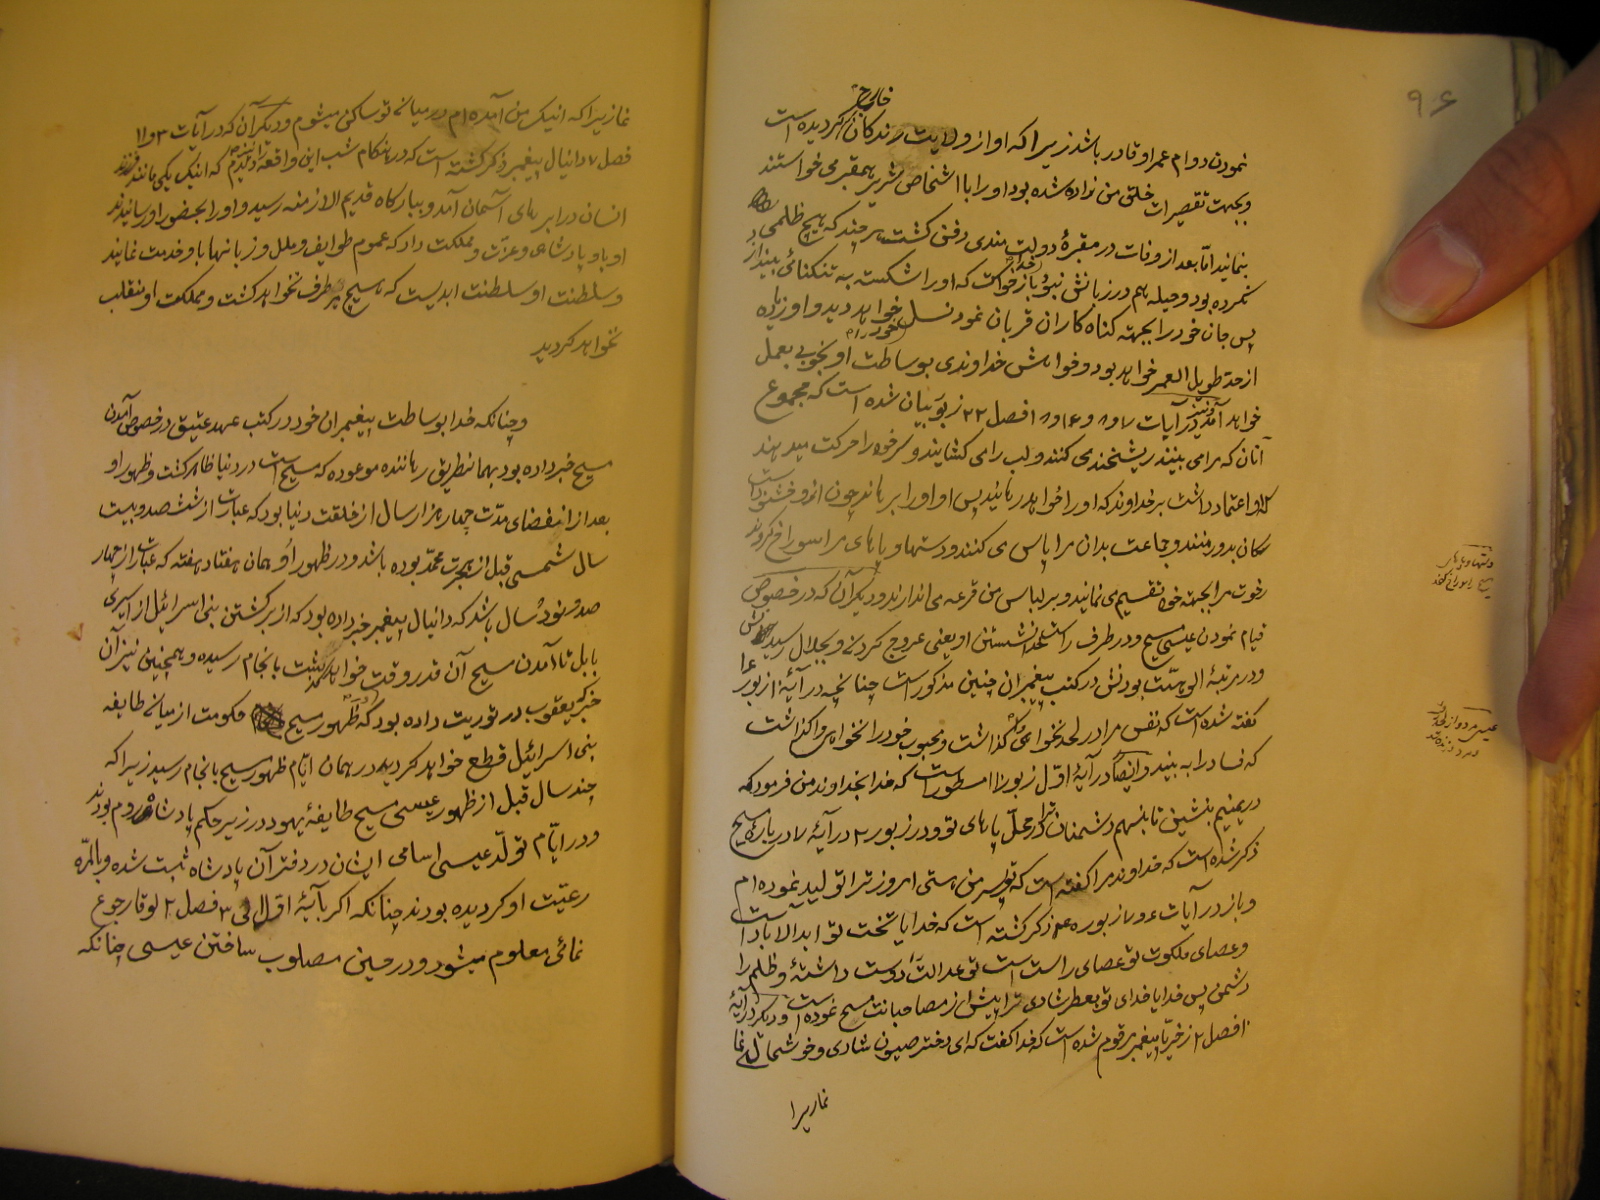 ۹۶
خارج
نمودن دوام عمر او قادر باشد زیرا که او از ولایت زندگان کردیده است
و بجهت تقصیرات خلق من زده شده بود او را با اشخاص شریر بمقبره می خواستند
بنمانید امّا بعد از وفات در مقبرهٔ دولت مندی دفن کشت هر چند که هیچ ظلمی
نکرده بود و حیله هم در زبانش نبود باز خدا خواست که او را شکسته به تنکنائی بیندازد
پس جان خود را بجهته کناه کاران قربان نمود نسل خود را خواهد دید و او زیاده
از حد طویل العمر خواهد بود و خواهش خداوندی بوساطت او بخوبی بعمل
خواهد آمد و نیز در آیات ۷ و ۸ و ۱۶ و ۱۸ فصل ۲۲ زبور بیان شده است که مجموع
آنان که مرا می بینند ریشخندی کنند و لب را می کشایند و سر خود را حرکت میدهند
که او اعتماد داشت بر خداوند که او را خواهد رهانید پس او او را برهاند چون از او خوشنود است
سکان بدور منند و جماعت بدان مرا پاس می کنند و دستها و پاهای مرا سوراخ کردند
رخوت مرا بجهته خود تقسیم می نمایند و بر لباس من قرعه می اندازند و دیکر آن که در خصوص
قیام نمودن عیسی مسیح و در طرف راست خدا نشستن او یعنی عروج کردن و بجلال رسیدنش
و در مرتبهٔ الوهیّت بودنش در کتب پیغمبران چنین مذکور است چنانچه در آیهٔ ۱۰ زبور ۱۶
کفته شده است که نفس مرا در لحد نخواهی کذاشت و محبوب خود را نخواهی واکذاشت
که فساد را به بیند و ایضاً در آیهٔ اوّل زبور ۱۱۰ مسطور است که خدا بخداوند من فرمود که
در یمینم بنشین تا بنهم دشمنان ترا در محلّ پاهای تو و در زبور ۲ در آیهٔ ۷ در بارهٔ مسیح
ذکر شده است که خداوند مرا کفته است که تو پسر من هستی امروز ترا تولید نموده ام
و باز در آیات ۶ و ۷ از زبور ۴۵ ذکر کشته است که خدایا تخت تو ابد الآباد است
و عصای ملکوت تو عصای راست است تو عدالت را دوست داشتهٔ و ظلم را
دشمن پس خدایا خدای تو بعطر شادی ترا پیش از مصاحبانت مسح نموده است و دیکر در آیهٔ
۱۰ فصل ۲ زخریّا پیغمبر مرقوم شده است که خدا کفت که ای دختر صیون شادی و خوشحالی نما
نما زیرا
دستها و پاهای
مسیح را سوراخ کنند
نما زیرا که اینک من آمده ام در میانهٔ تو ساکن میشوم و دیکر آن که در آیات ۱۳ و ۱۴
فصل ۷ دانیال پیغمبر ذکر کشته است که در هنکام شب این واقعه را دیدم که اینک یکی مانند فرزند
انسان در ابرهای آسمان آمد و ببارکاه قدیم الازمنه رسید و او را بحضور او رسانیدند
او باو پادشاهی و عزّت و مملکت داد که عموم طوایف و ملل و زبانها باو خدمت نمایند
و سلطنت او سلطنت ابدیست که هیچ بر طرف نخواهد کشت و مملکت او منقلب
نخواهد کردید
و چنانکه خدا بوساطت پیغمبران خود در کتب عهد عتیق در خصوص آمدن
مسیح خبر داده بود بهمانطریق رهاننده موعوده که مسیح است در دنیا ظاهر کشت و ظهور او
بعد از انقضای مدّت چهار هزار سال از خلقت دنیا بود که عبارت از ششصد و بیست
سال شمسی قبل از هجرت محمّد بوده باشد و در ظهور او همان هفتاد هفته که عبارت از چهار
صد و نود سال باشد که دانیال پیغمبر خبر داده بود که از برکشتن بنی اسرائیل از اسیری
بابل تا آمدن مسیح آن قدر وقت خواهد کذشت بانجام رسیده و همچنین نیز آن
خبر که یعقوب در توریت داده بود که در ظهور مسیح حکومت از میانهٔ طایفه
بنی اسرائیل قطع خواهد کردید در همان ایّام ظهور مسیح بانجام رسید زیرا که
چند سال قبل از ظهور عیسی مسیح طایفهٔ یهود در زیر حکم پادشاه روم بودند
و در ایّام تولّد عیسی اسامی ایشان در دفتر آن پادشاه ثبت شده و بالمرّه
رعیّت او کردیده بودند چنانکه اکر بآیهٔ اوّل الی ۳ فصل ۲ لوقا رجوع
نمائی معلوم میشود و در حین مصلوب ساختن عیسی چنانکه